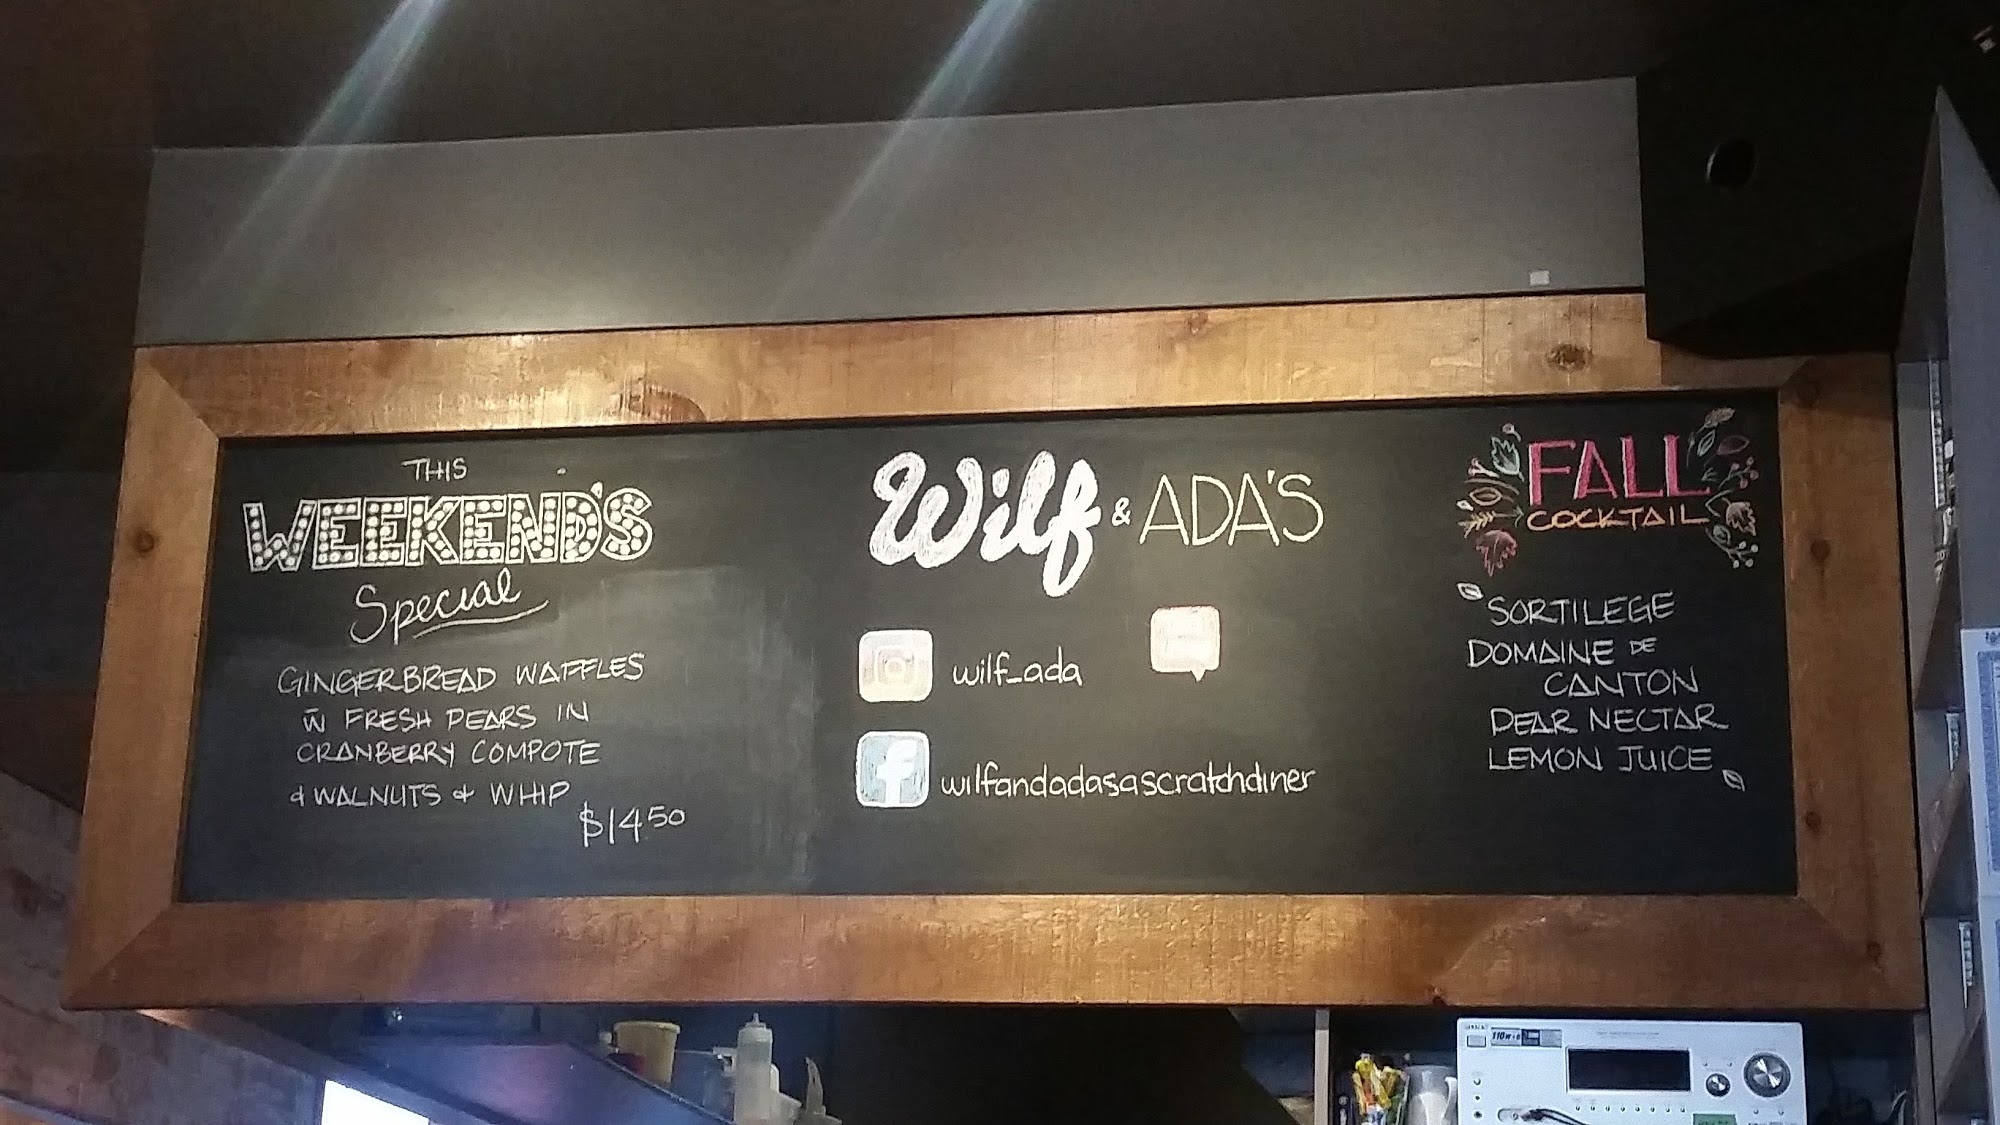 THIS
WEEKEND'S
Special
GINGERBREAD WAFFLES
W FRESH PEARS IN
CRANBERRY COMPOTE
& WALNUTS & WHIP
$14.50
Wilf & ADA'S
wilf_ada
f wilfandadasascratchdiner
FALL
COCKTAIL
SORTILEGE
DOMAINE DE
CANTON
PEAR NECTAR
LEMON JUICE